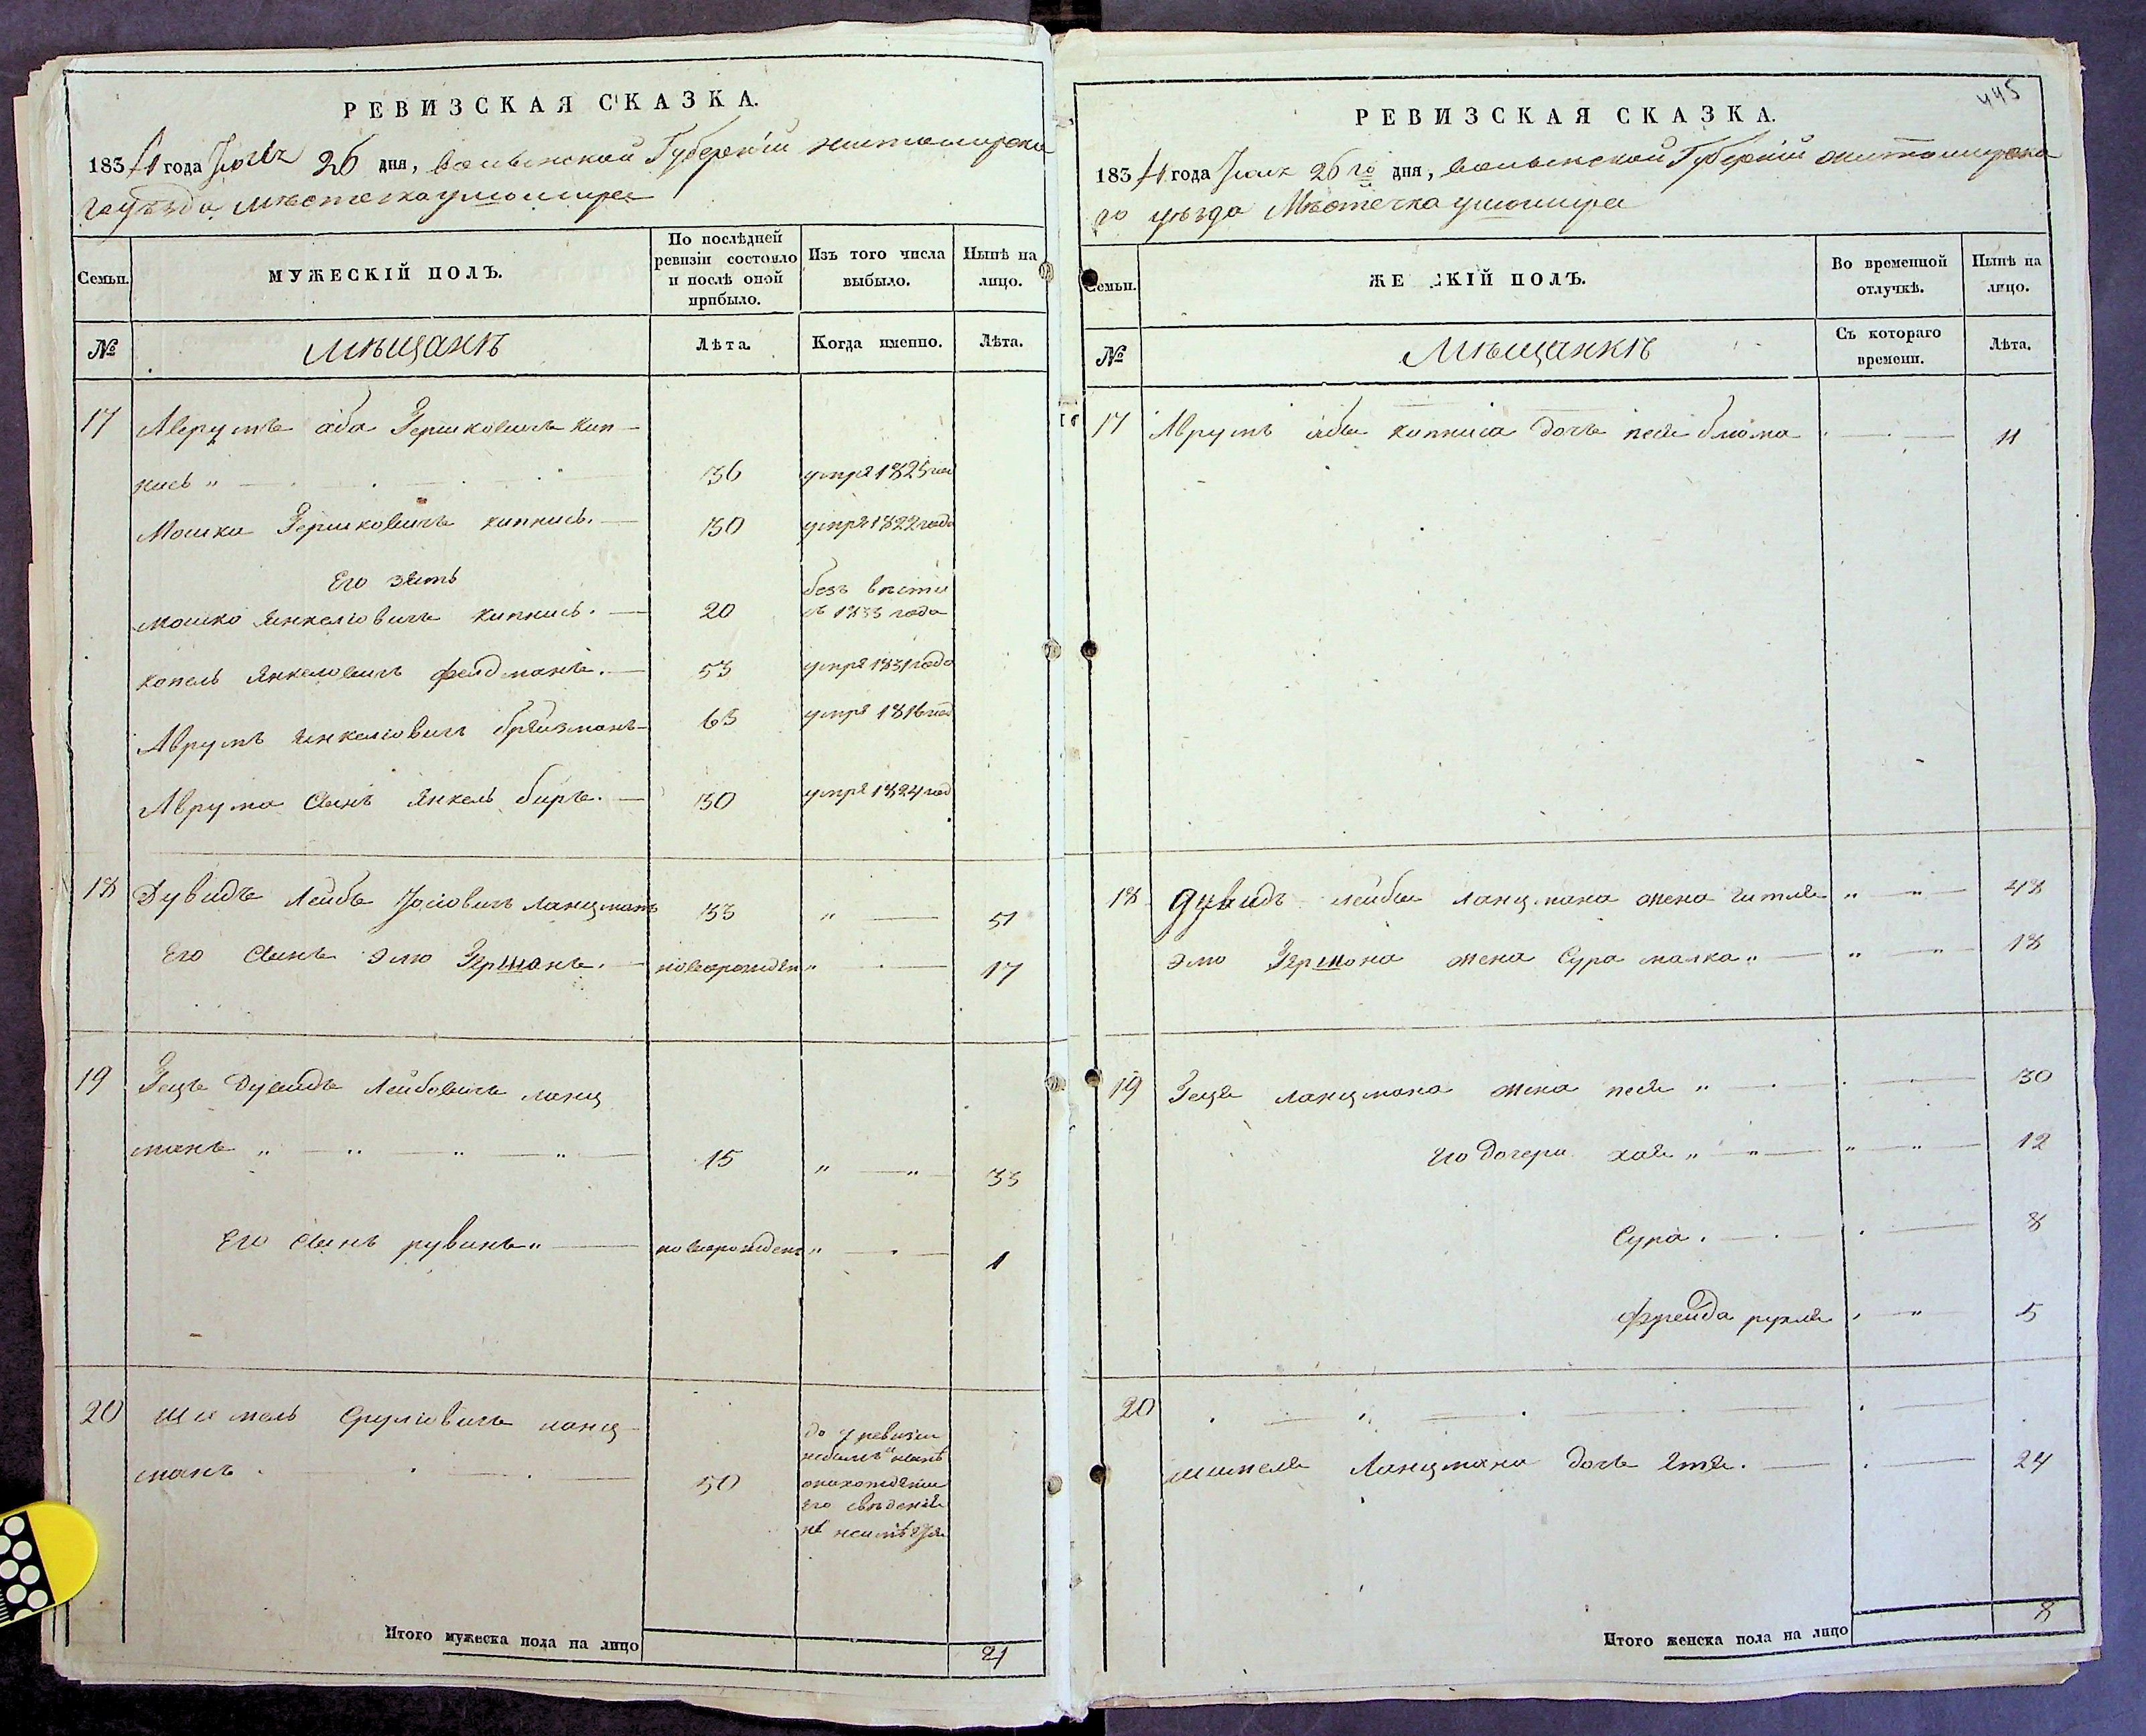 РЕВИЗСКАЯ СКАЗКА.
1834 года Июля 26 дня, волынской Губернии житомирска
го уѣзда мѣстечка ушомира
Семьи.
МУЖЕСКІЙ ПОЛЪ.
По послѣдней ревизіи состояло и послѣ оной прибыло.
Изъ того числа выбыло.
Нынѣ на лицо.
№
мѣщанѣ
Лѣта.
Когда именно.
Лѣта.
17 Аврумъ аба Гершковичъ кип-
нисъ 36 умре 1825 года
Мошка Гершковичъ кипнисъ. 30 умре 1822 года
Его зять
мошко Янкелювичъ кипнисъ. 20 безъ вѣсти съ 1833 года
копель Янкеловичъ фелдманъ. 53 умре 1831 года
Аврумъ Янкелювичъ 63 умре 1816 год
Аврума Сынъ Янкель беръ. 30 умре 1824 год
18 Дувидъ Лейба Йосіовичъ Ланцманъ 33 " 51
Его Сынъ Элю Гершонъ. новорожден " 17
19 Гецъ Дувидъ Лейбовичъ ланц
манъ " " " " 15 " " 33
Его Сынъ рувинъ " новорожден " 1
20 Шимель Срулювичъ ланц-
манъ 50
до 7 ревизіи
небылъ и нынѣ
онахожденіи
Его свѣденій
не неимѣется
Итого мужеска пола на лицо 21
445
РЕВИЗСКАЯ СКАЗКА.
1834 года Июля 26 го дня, волынской Губерніи житомирска
го уѣзда Мѣстечка ушомира
Семьи.
ЖЕ СКІЙ ПОЛЪ.
Во временной отлучкѣ.
Нынѣ на лицо.
№
Мѣщанкѣ
Съ котораго времени.
Лѣта.
17 Аврумъ абы кипниса дочь песя блюма 11
18 Дувидъ лейбы ланцмана жена гитля " " 48
элю Гершона жена Сура малка " " " 18
19 Геца ланцмана жена песя " 30
Его дочери хая " " " " 12
Сура. 8
фрейда рухля " 5
20
шимеля Ланцмана дочь Этя. 24
Итого женска пола на лицо 8